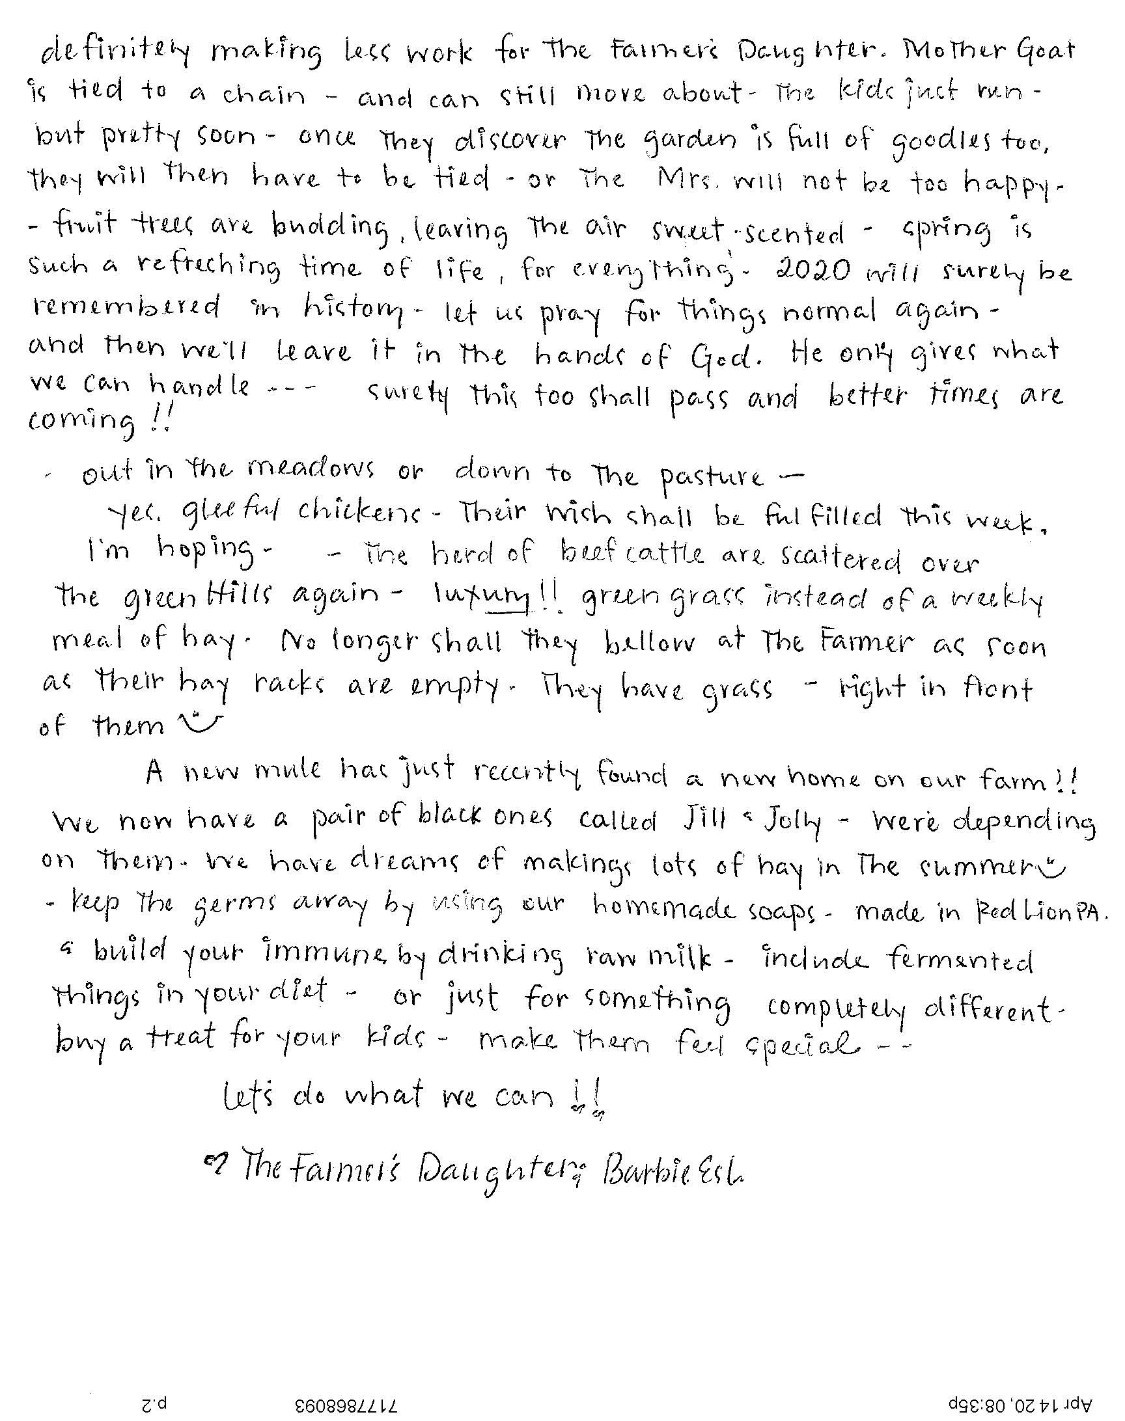 definitely making less work for the Farmer's Daughter. Mother Goat
is tied to a chain - and can still move about - The kids just run -
but pretty soon - once they discover the garden is full of goodies too,
they will then have to be tied - or the Mrs. will not be too happy -
- fruit trees are budding, leaving the air sweet-scented - spring is
such a refreshing time of life, for everything - 2020 will surely be
remembered in history - let us pray for things normal again -
and then we'll leave it in the hands of God. He only gives what
we can handle --- surely this too shall pass and better times are
coming !!
- out in the meadows or down to the pasture —
yes, gleeful chickens - Their wish shall be fulfilled this week,
I'm hoping - - The herd of beef cattle are scattered over
the green Hills again - luxury!! green grass instead of a weekly
meal of hay. No longer shall they bellow at The Farmer as soon
as their hay racks are empty. They have grass - right in front
of them ☺
A new mule has just recently found a new home on our farm!!
We now have a pair of black ones called Jill & Jolly - we're depending
on them. We have dreams of makings lots of hay in the summer ☺
- keep the germs away by using our homemade soaps - made in Red Lion PA.
& build your immune by drinking raw milk - include fermented
things in your diet - or just for something completely different -
buy a treat for your kids - make them feel special --
let's do what we can !!
♡ The Farmer's Daughter; Barbie Esh
Apr 14 20, 08:35p 7177868093 p.2